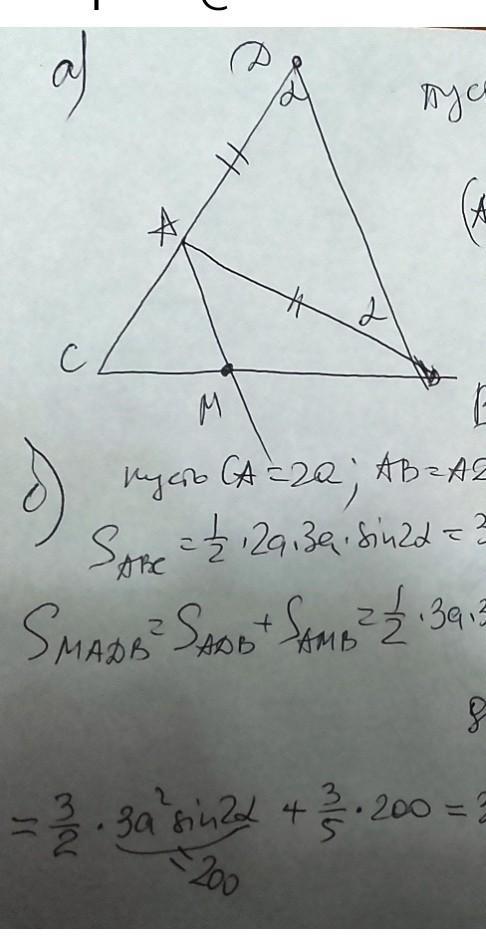 а)
D
α
пус
(A
A
α
C
M
B
б)
пусть CA = 2a; AB = A
S_ABC = 1/2 · 2a · 3a · sin2α = 3
S_MADB = S_ADB + S_AMB = 1/2 · 3a · 3
= 3/2 · 3a² sin2α + 3/5 · 200 = 3
= 200